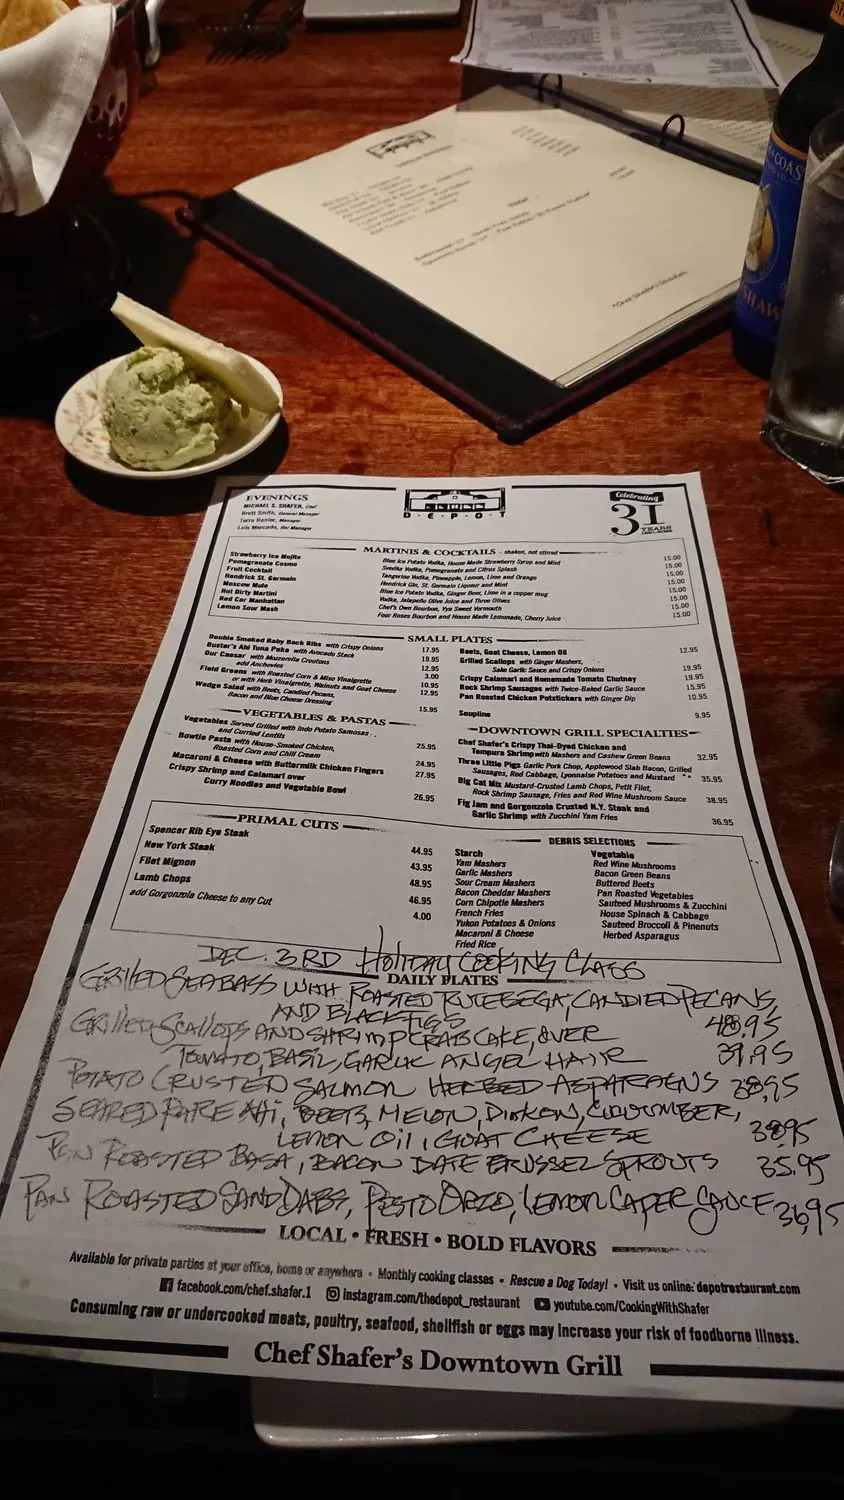 COAST
SHAW
EVENINGS
MICHAEL S. SHAFER, Chef
Brett Smith, General Manager
Terra Ranier, Manager
Luis Mercado, Bar Manager
D·E·P·O·T
Celebrating
31
YEARS
MARTINIS & COCKTAILS - shaken, not stirred
Strawberry Ice Mojito Blue Ice Potato Vodka, House Made Strawberry Syrup and Mint 15.00
Pomegranate Cosmo Svedka Vodka, Pomegranate and Citrus Splash 15.00
Fruit Cocktail Tangerine Vodka, Pineapple, Lemon, Lime and Orange 15.00
Hendrick St. Germain Hendrick Gin, St. Germain Liqueur and Mint 15.00
Moscow Mule Blue Ice Potato Vodka, Ginger Beer, Lime in a copper mug 15.00
Hot Dirty Martini Vodka, Jalapeño Olive Juice and Three Olives 15.00
Red Car Manhattan Chef's Own Bourbon, Vya Sweet Vermouth 15.00
Lemon Sour Mash Four Roses Bourbon and House Made Lemonade, Cherry Juice 15.00
SMALL PLATES
Double Smoked Baby Back Ribs with Crispy Onions 17.95
Buster's Ahi Tuna Poke with Avocado Stack 19.95
Our Caesar with Mozzarella Croutons 12.95
add Anchovies 3.00
Field Greens with Roasted Corn & Miso Vinaigrette 10.95
or with Herb Vinaigrette, Walnuts and Goat Cheese 12.95
Wedge Salad with Beets, Candied Pecans,
Bacon and Blue Cheese Dressing 15.95
Beets, Goat Cheese, Lemon Oil 12.95
Grilled Scallops with Ginger Mashers,
Sake Garlic Sauce and Crispy Onions 19.95
Crispy Calamari and Homemade Tomato Chutney 19.95
Rock Shrimp Sausages with Twice-Baked Garlic Sauce 15.95
Pan Roasted Chicken Potstickers with Ginger Dip 10.95
Soupline 9.95
VEGETABLES & PASTAS
Vegetables Served Grilled with Indo Potato Samosas
and Curried Lentils 25.95
Bowtie Pasta with House-Smoked Chicken,
Roasted Corn and Chili Cream 24.95
Macaroni & Cheese with Buttermilk Chicken Fingers 27.95
Crispy Shrimp and Calamari over
Curry Noodles and Vegetable Bowl 26.95
DOWNTOWN GRILL SPECIALTIES
Chef Shafer's Crispy Thai-Dyed Chicken and
Tempura Shrimp with Mashers and Cashew Green Beans 32.95
Three Little Pigs Garlic Pork Chop, Applewood Slab Bacon, Grilled
Sausages, Red Cabbage, Lyonnaise Potatoes and Mustard 35.95
Big Cat Mix Mustard-Crusted Lamb Chops, Petit Filet,
Rock Shrimp Sausage, Fries and Red Wine Mushroom Sauce 38.95
Fig Jam and Gorgonzola Crusted N.Y. Steak and
Garlic Shrimp with Zucchini Yam Fries 36.95
PRIMAL CUTS
Spencer Rib Eye Steak 44.95
New York Steak 43.95
Filet Mignon 48.95
Lamb Chops 46.95
add Gorgonzola Cheese to any Cut 4.00
DEBRIS SELECTIONS
Starch
Yam Mashers
Garlic Mashers
Sour Cream Mashers
Bacon Cheddar Mashers
Corn Chipotle Mashers
French Fries
Yukon Potatoes & Onions
Macaroni & Cheese
Fried Rice
Vegetable
Red Wine Mushrooms
Bacon Green Beans
Buttered Beets
Pan Roasted Vegetables
Sauteed Mushrooms & Zucchini
House Spinach & Cabbage
Sauteed Broccoli & Pinenuts
Herbed Asparagus
DEC. 3RD HOLIDAY COOKING CLASS
DAILY PLATES
GRILLED SEABASS WITH ROASTED RUTEBEGA, CANDIED PECANS,
AND BLACK FIGS 48.95
GRILLED SCALLOPS AND SHRIMP CRAB CAKE, OVER
TOMATO, BASIL, GARLIC ANGEL HAIR 39.95
POTATO CRUSTED SALMON HERBED ASPARAGNS 38.95
SEARED RARE AHI, BEETS, MELON, DIAKON, CUCUMBER,
LEMON OIL, GOAT CHEESE 38.95
PAN ROASTED BASA, BACON DATE BRUSSEL SPROUTS 35.95
PAN ROASTED SAND DABS, PESTO ORZO, LEMON CAPER SAUCE 36.95
LOCAL • FRESH • BOLD FLAVORS
Available for private parties at your office, home or anywhere • Monthly cooking classes • Rescue a Dog Today! • Visit us online: depotrestaurant.com
facebook.com/chef.shafer.1 instagram.com/thedepot_restaurant youtube.com/CookingWithShafer
Consuming raw or undercooked meats, poultry, seafood, shellfish or eggs may increase your risk of foodborne illness.
Chef Shafer's Downtown Grill